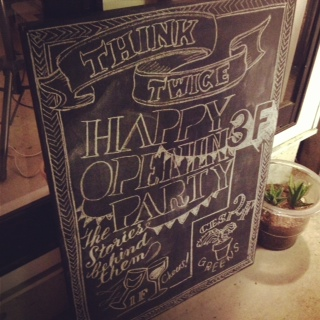 THINK
TWICE
HAPPY
OPENIN
3F
PARTY
The
Stories
Behind
them
1F
Cheers!
2
GREENS